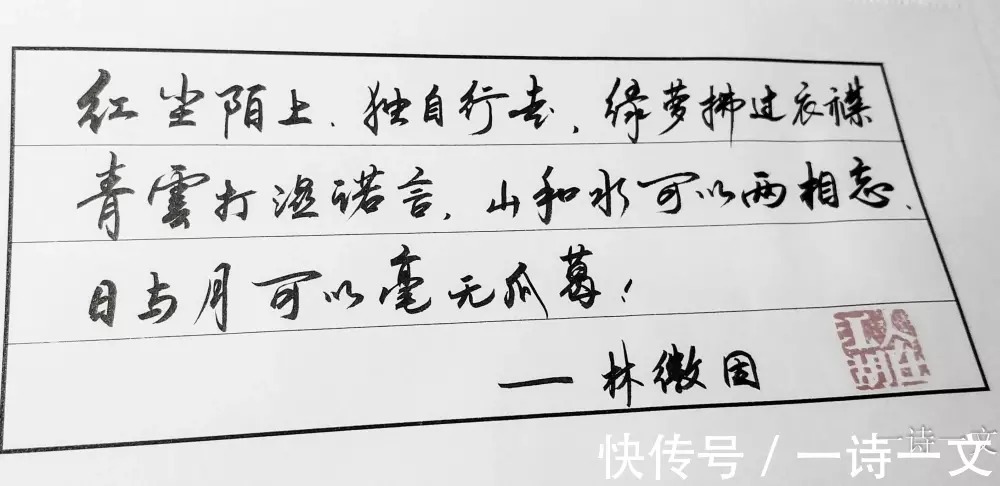 红尘陌上、独自行走,绿萝拂过衣襟
青雲打湿诺言,山和水可以两相忘、
日与月可以毫无瓜葛!
——林徽因
人在江湖
一诗一文
快传号/一诗一文